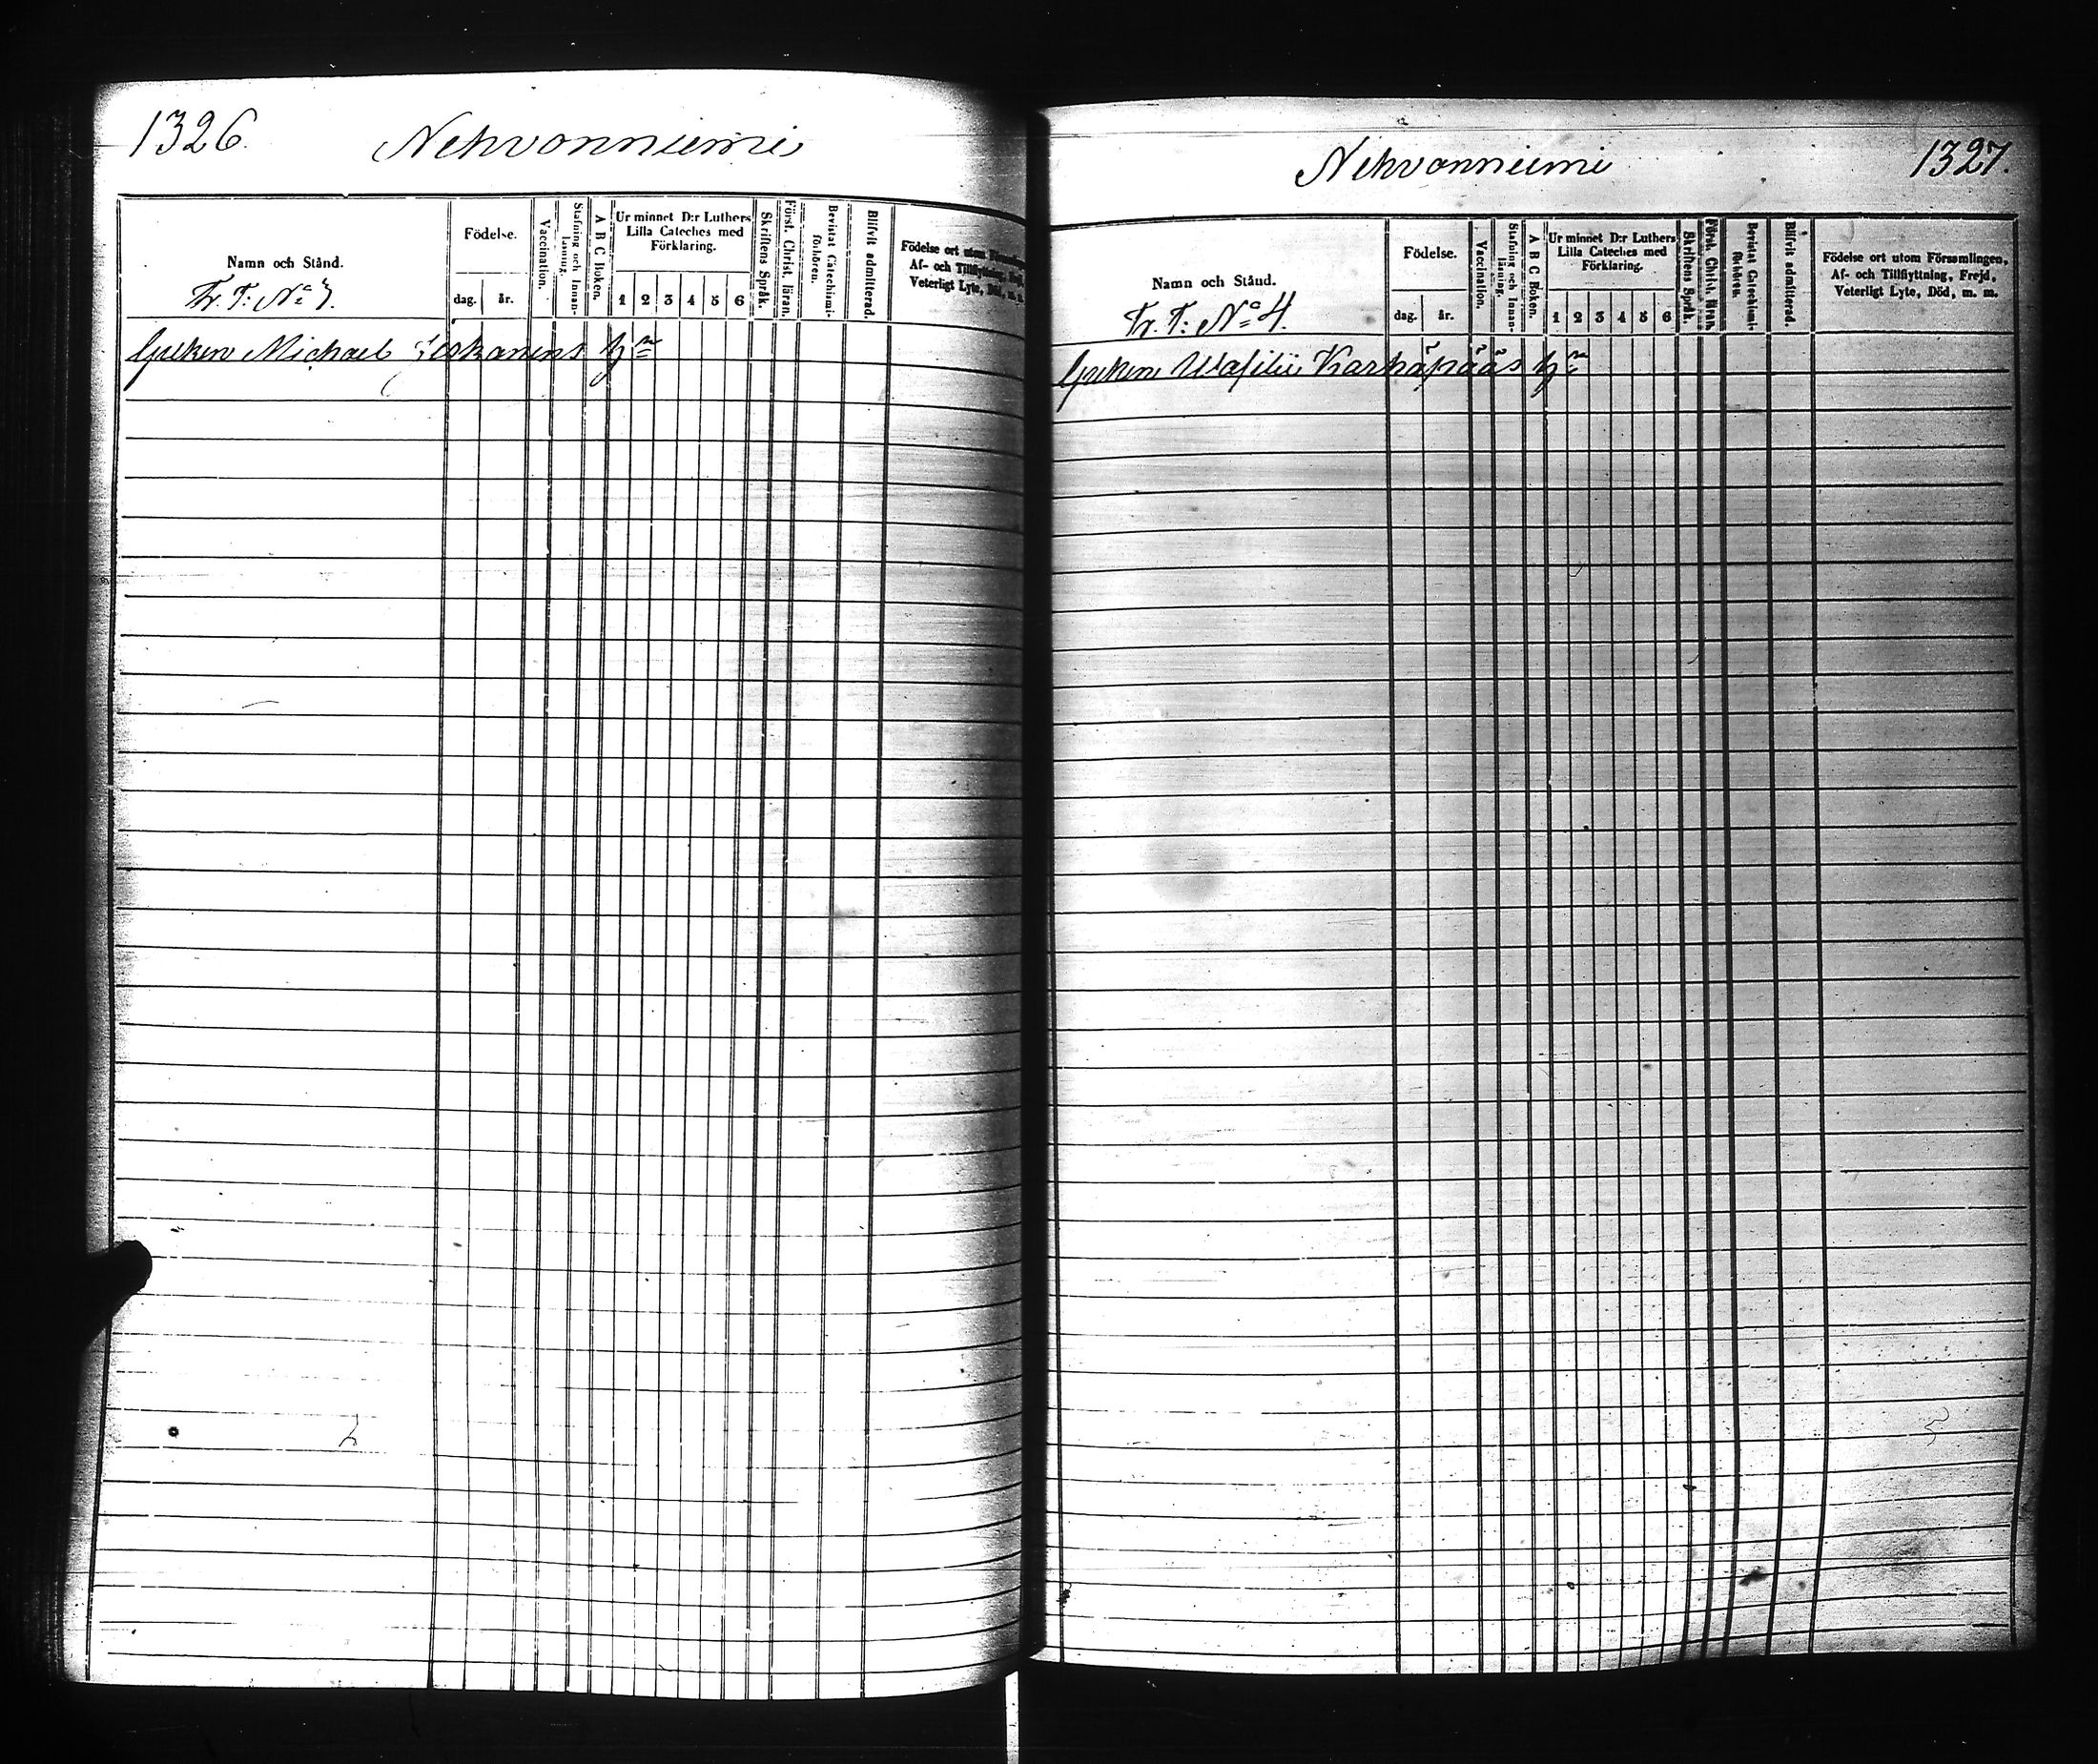 1326.
Nehvonniemi
Namn och Stånd.
Fr. T: No 3.
Födelse.
dag. år.
Vaccination.
Stafning och Innan-läsning.
A B C Boken.
Ur minnet D:r Luthers
Lilla Cateches med
Förklaring.
1 2 3 4 5 6
Skriftens Språk.
Först. Christ. läran.
Bevistat Catechismi-förhören.
Blifvit admitterad.
Födelse ort utom
Af- och Tillflyttning,
Veterligt Lyte, Död, m. m.
Greken Michael
Nehvonniemi
1327.
Namn och Stånd.
Fr. T: No 4.
Födelse.
dag. år.
Vaccination.
Stafning och Innan-läsning.
A B C Boken.
Ur minnet D:r Luthers
Lilla Cateches med
Förklaring.
1 2 3 4 5 6
Skriftens Språk.
Först. Christ. läran.
Bevistat Catechismi-förhören.
Blifvit admitterad.
Födelse ort utom Församlingen,
Af- och Tillflyttning, Frejd,
Veterligt Lyte, Död, m. m.
Greken Wasilii Karhäpääs